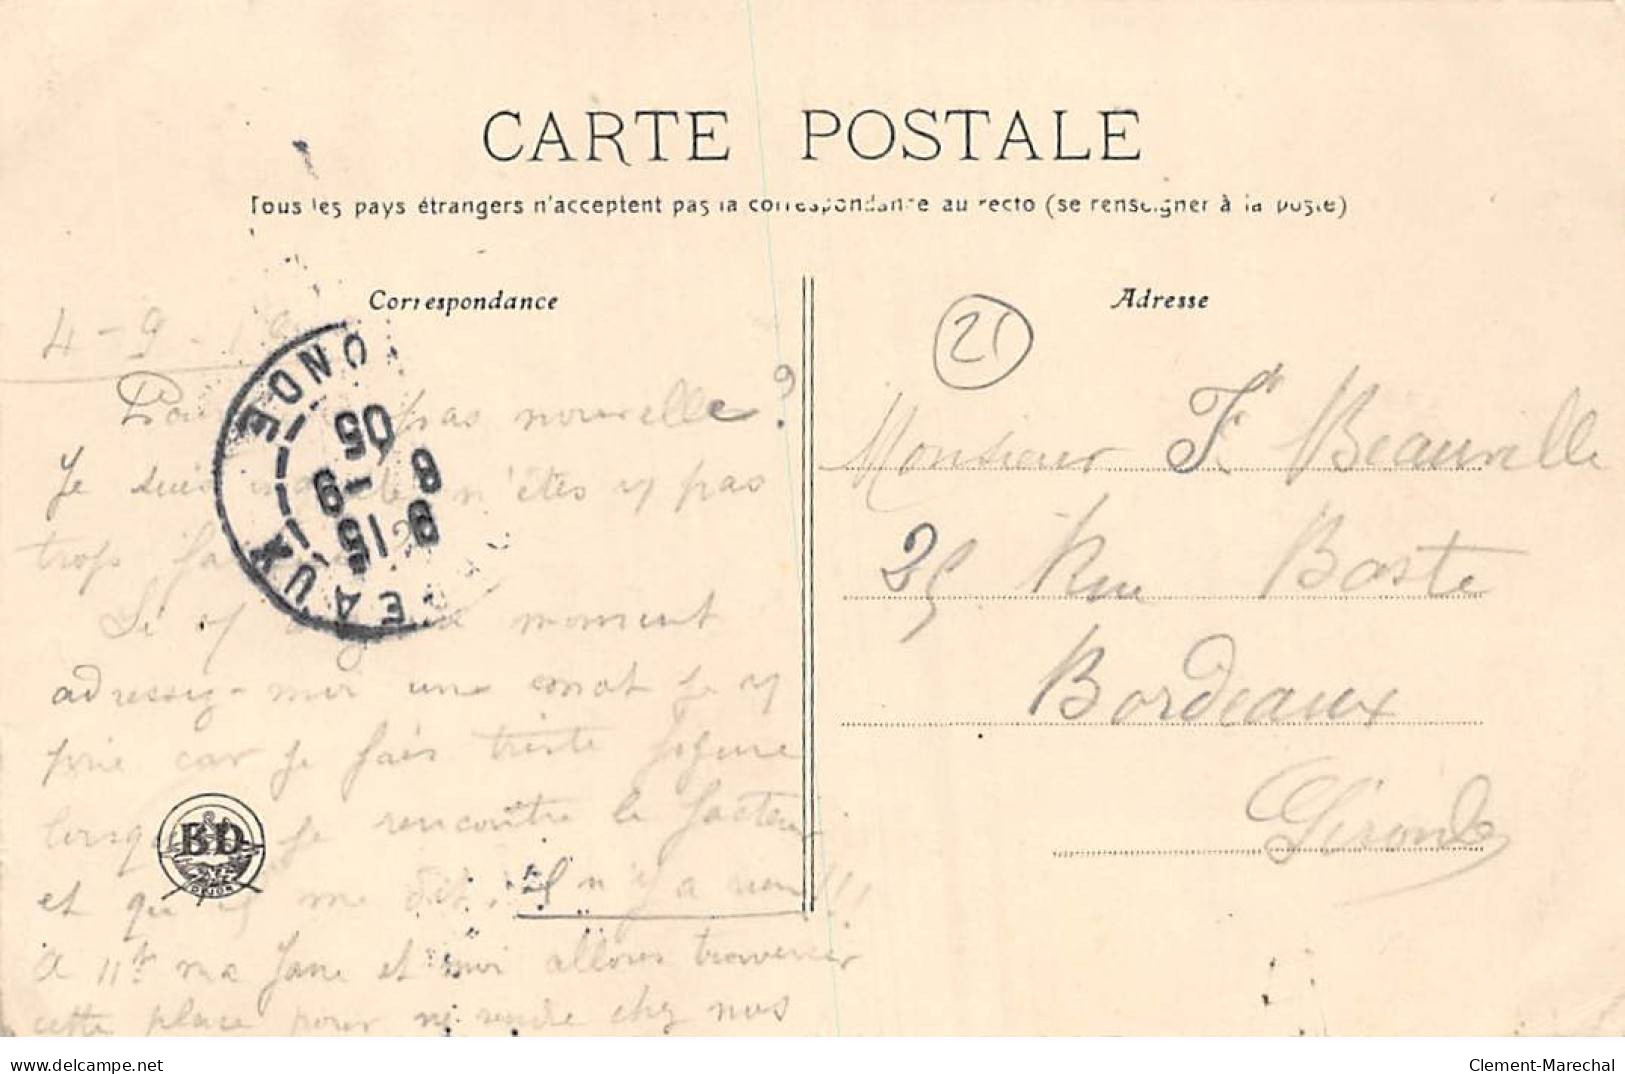 CARTE POSTALE
Tous les pays étrangers n'acceptent pas la correspondance au recto (se renseigner à la poste)
Correspondance
4-9-19
pas nouvelle ?
Je suis n'êtes y pas
trop
Si y moment
adressez-moi une mot je y
prie car je fais triste figure
je rencontre le facteur
et qu'il me dit, il n'y a rien !!!
a 11h ma Jane et moi allons traverser
cette place pour me rendre chez nos
BORDEAUX GIRONDE
8 15
8 -9
05
BD
DIJON
Adresse
21
Monsieur Fd Beauville
25 Rue Baste
Bordeaux
Gironde
delcampe.net
Clement-Marechal